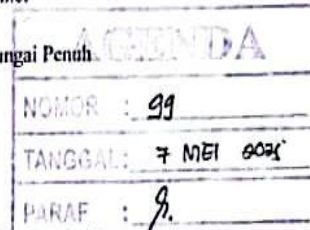 ngai Penuh
AGENDA
NOMOR : 99
TANGGAL : 7 MEI 2025
PARAF :